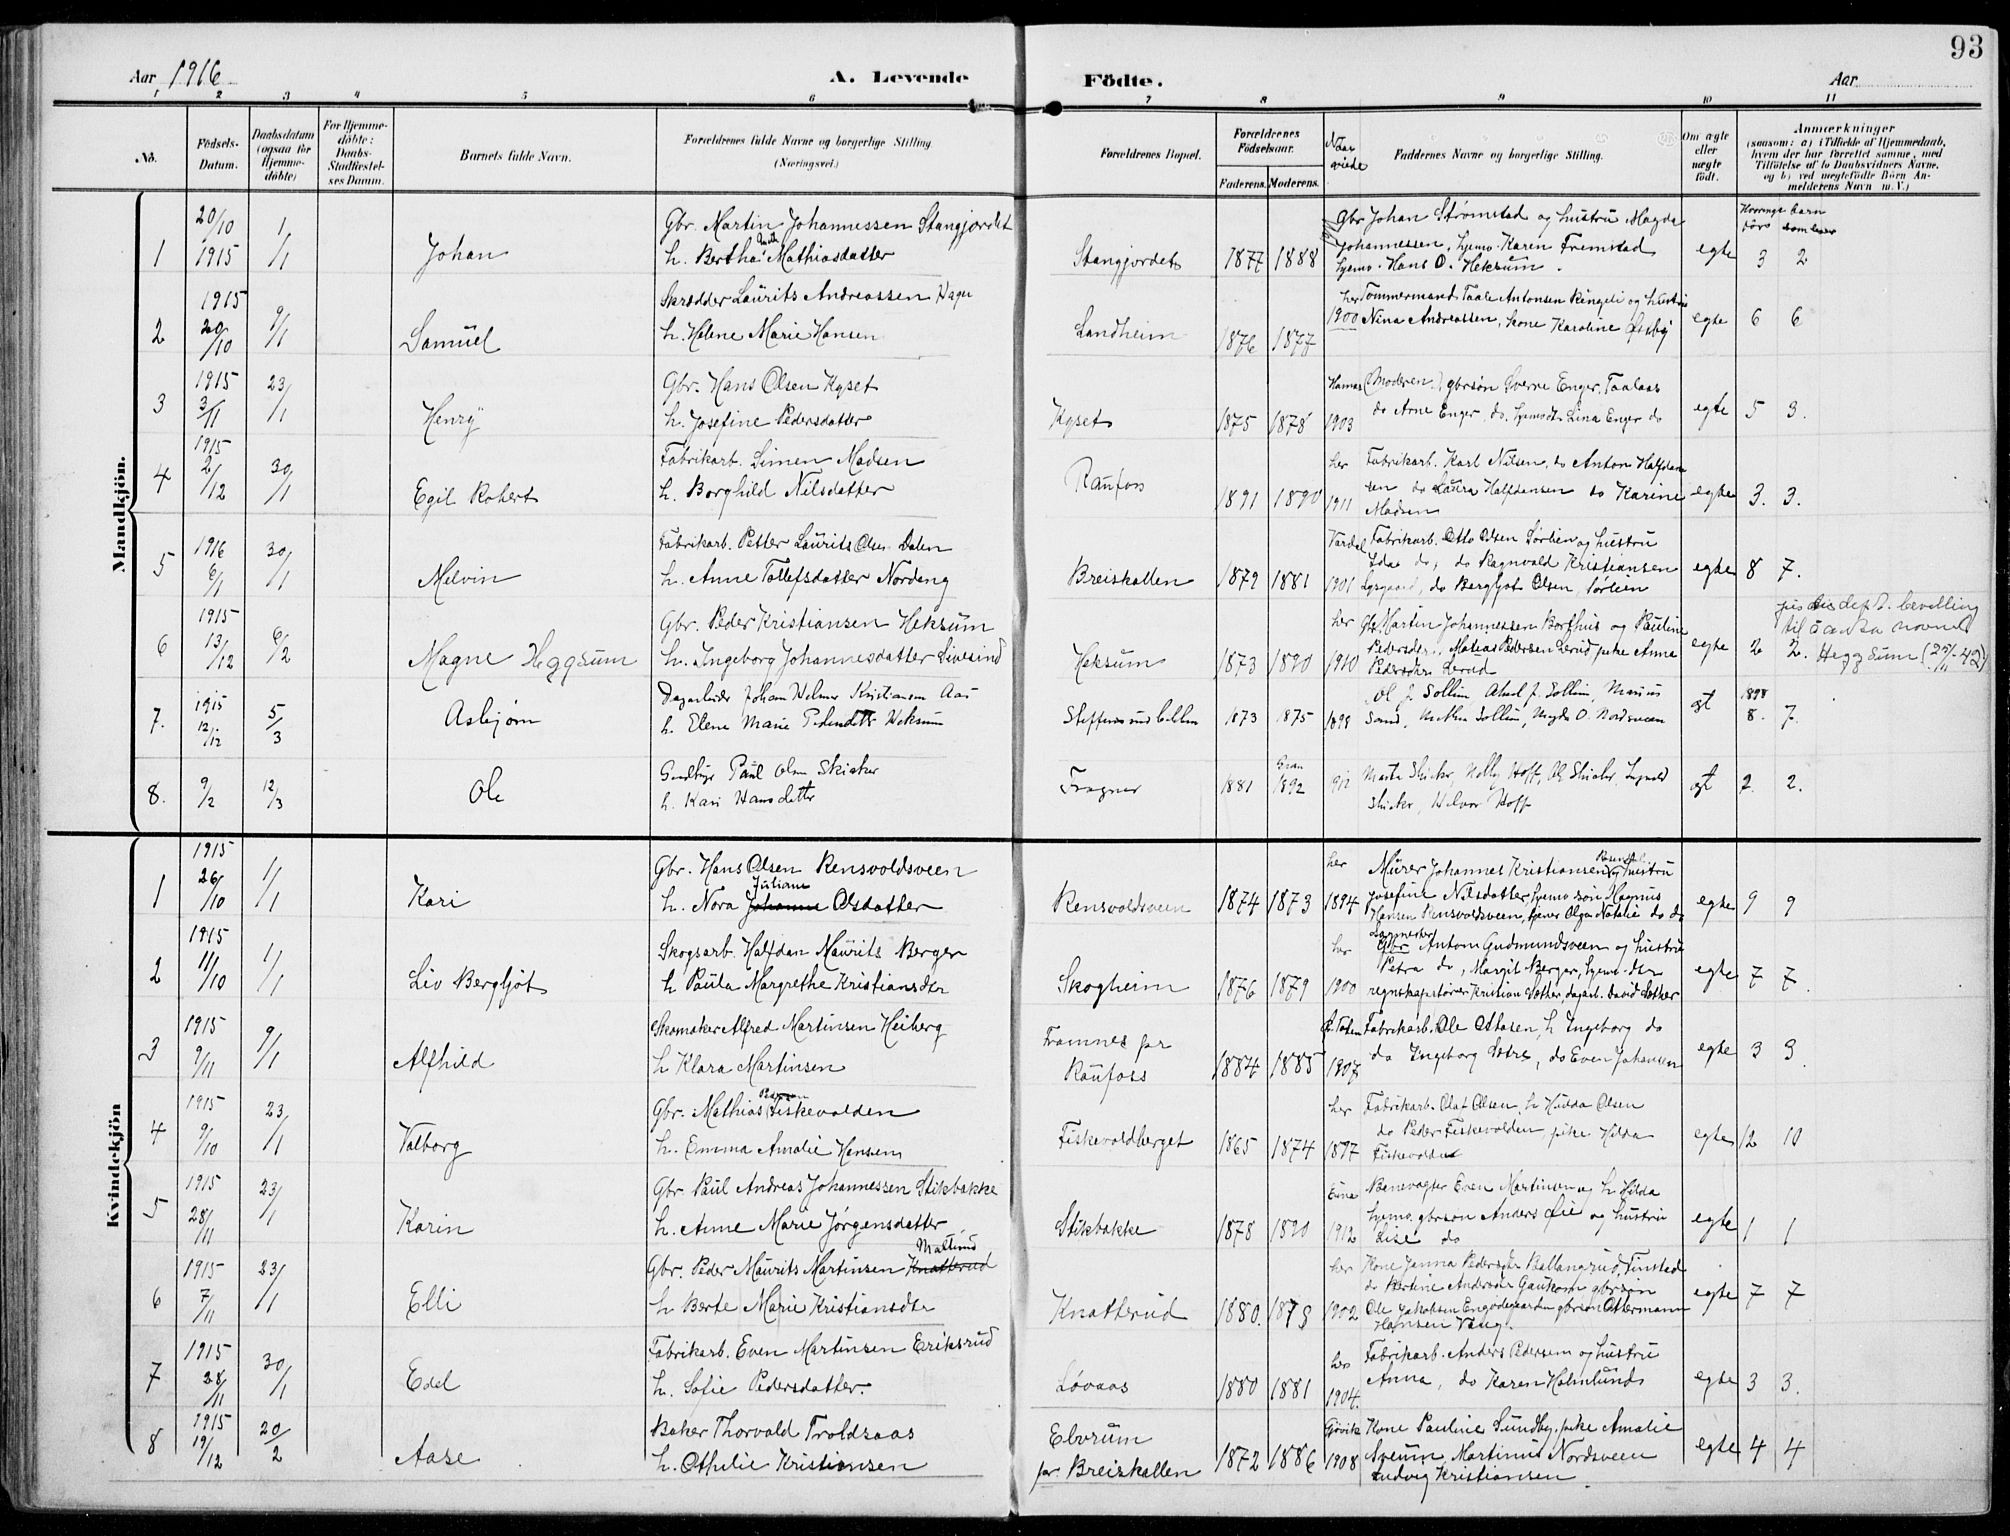 93
Aar 1916
A. Levende Födte.
Aar
1 2 3 4 5 6 7 8 9 10 11
No.
Födsels-
Datum.
Daabsdatum
(ogsaa for
Hjemme-
döbte)
For Hjemme-
döbte:
Daabs-
Stadfæstel-
ses Datum.
Barnets fulde Navn.
Forældrenes fulde Navne og borgerlige Stilling
(Næringsvei.)
Forældrenes Bopæl.
Forældrenes
Födselsaar.
Faderens. Moderens.
Naar
viede
Faddernes Navne og borgerlige Stilling.
Om ægte
eller
uægte
födt.
Anmærkninger
(saasom: a) i Tilfælde af Hjemmedaab,
hvem der har forrettet samme, med
Tilföielse af to Daabsvidners Navne,
og b) ved uægtefödte Börn An-
melderens Navn m. V.)
Mandkjön.
1 20/10 1915 1/1 Johan
Gbr. Martin Johannessen Stangjordet
h. Bertha Mathiasdatter
Stangjordet 1877 1888
Gbr Johan Strömstad og hustru Magda
Johannessen, hjemv. Karin Fremstad
hjemv. Hans O. Heksum.
egte 3 2
2 1915 20/10 9/1 Samuel
Skrædder Laurits Andreassen Hagen
h. Helene Marie Hansen
Landheim 1876 1877 her 1900
Tommermand Taale Antonsen Ringeli og hustru
Nina Andreassen, kone Karoline
egte 6 6
3 1915 3/11 23/1 Henry
Gbr. Hans Olsen Kyset
h. Josefine Pedersdatter
Kyset 1875 1878 1903
(Moderen.) gbrsön Sverre Enger, Taalaas
do Arne Enger, do, hjemvdt. Lina Enger do
egte 5 3.
4 1915 2/12 30/1 Egil Robert
Fabrikarb. Simen Madsen
h. Borghild Nilsdatter
Raufoss 1891 1890 her 1911
Fabrikarb. Karl Nilsen, do Anton Halfdan
sen do Laura Halfdansen do Karine
Madsen
egte 3. 3.
5 1916 6/1 30/1 Melvin
Fabrikarb. Petter Laurits Olsen Dalen
h. Anne Tollefsdatter Nordeng
Breiskallen 1879 1881 Vardal 1901
Fabrikarb. Otto Olsen Sörlien og hustru
Ida do, do Ragnvald Kristiansen
Lysgaard, do Bergljot Olsen Sörlien
egte 8 7.
6 1915 13/12 6/2 Magne Heggsum
Gbr. Peder Kristiansen Heksum
h. Ingeborg Johannesdatter Sivesind
Heksum 1873 1890 her 1910
Gbr. Martin Johannessen Borthus og Pauline
Pedersdtr., Matias Pedersen Lerud, pike Anna
Pedersdtr Lerud
egte 2 2.
jus disdept. bevilling
til å anta navnet
Heggsum (29/11-42)
7. 1915 12/12 5/3 Asbjörn
Dagarbeider Johan Hilmar Kristiansen Aas
h. Elene Marie Pedersdtr Heksum
1873 1875 1898
Ol. J. Sollien, Aksel J. Sollien, Marius
Sand, Sollien, Magda O. Nordsveen
egt 1898 8. 7.
8. 9/2 12/3 Ole
Gaardbr Paul Olsen Skiaker
h. Kari Hansdatter
Fragner 1881 Gran 1892 912
Marta Skiaker, Nelly Hoff, Ole Skiaker,
Skiaker, Hoff
egt 2. 2.
Kvindekjön
1 1915 26/10 1/1 Kari
Gbr. Hans Olsen Rensvoldsveen
h. Nora Johanne Juliane Olsdatter
Rensvoldsveen 1874 1873 her 1894
Murer Johannes Kristiansen og hustru
Josefine Nilsdatter, hjemv sön Magnus
Hansen Rensvoldsveen, hjemv Olga Natalie do do
egte 9 9
2 1915 11/10 1/1 Liv Bergljot
Skogsarb. Halfdan Maurits Berger
h Paula Margrethe Kristiansdtr
Skogheim 1876 1879 her 1900
Gbr Anton Gudmundsveen og hustru
Petra do, Margit Berger, hjemv. dtr
regnskapsförer Kristian Sæther, dagarb. David Sæther
egte 7 7
3 1915 9/11 9/1 Alfhild
Skomaker Alfred Martinsen Heiberg
h Klara Martinsen
Framnes pr Raufoss 1884 1885 Ö. Toten 1907
Fabrikarb. Ole Ottosen, h Ingeborg do
do Ingeborg Sætre, do Even Johansen
egte 3 3
4 1915 9/10 23/1 Valborg
Gbr. Mathias Fiskevolden
h. Emma Amalie Hansen
Fiskevoldberget 1865 1874 her 1897
Fabrikarb. Olaf Olsen, h Hilda Olsen
do Peder Fiskevolden, pike Hilda
Fiskevolden
egte 12 10
5 1915 28/11 23/1 Karin
Gbr. Paul Andreas Johannessen Stikbakke
h. Anne Marie Jörgensdatter
Stikbakke 1878 1890 Eina 1912
Banevogter Even Martinsen og h Hilda
hjemv. gbrsön Anders Öie og hustru
Lise do
egte 1 1
6 1915 7/11 23/1 Elli
Gbr. Peder Maurits Martinsen Knatterud
h Berte Marie Kristiansdtr
Knatterud 1880. 1878 her 1902
Kone Janna Pedersdtr Ballangrud, Finstad
do Bertine Andersdtr Gaukom gbrsön
Ole Jakobsen Engodegaarden gbrsön Ottermann
Hansen Vang.
egte 7 7
7 1915 28/11 30/1 Edel
Fabrikarb. Even Martinsen Eriksrud
h. Sofie Pedersdatter.
Lövaas 1880 1881 her 1904.
Fabrikarb. Anders Pedersen og hustru
Anna, do Karen Holmlund
egte 3 3.
8 1915 19/12 20/2 Aase
Baker Thorvald Troldsaas
h. Othilie Kristiansen
Elvrum
pr. Breiskallen 1872 1886 Gjövik 1908
Kone Pauline Sundby, pike Amalie
Sveum, Martinus Nordsveen
Ludvig Kristiansen
egte 4 4